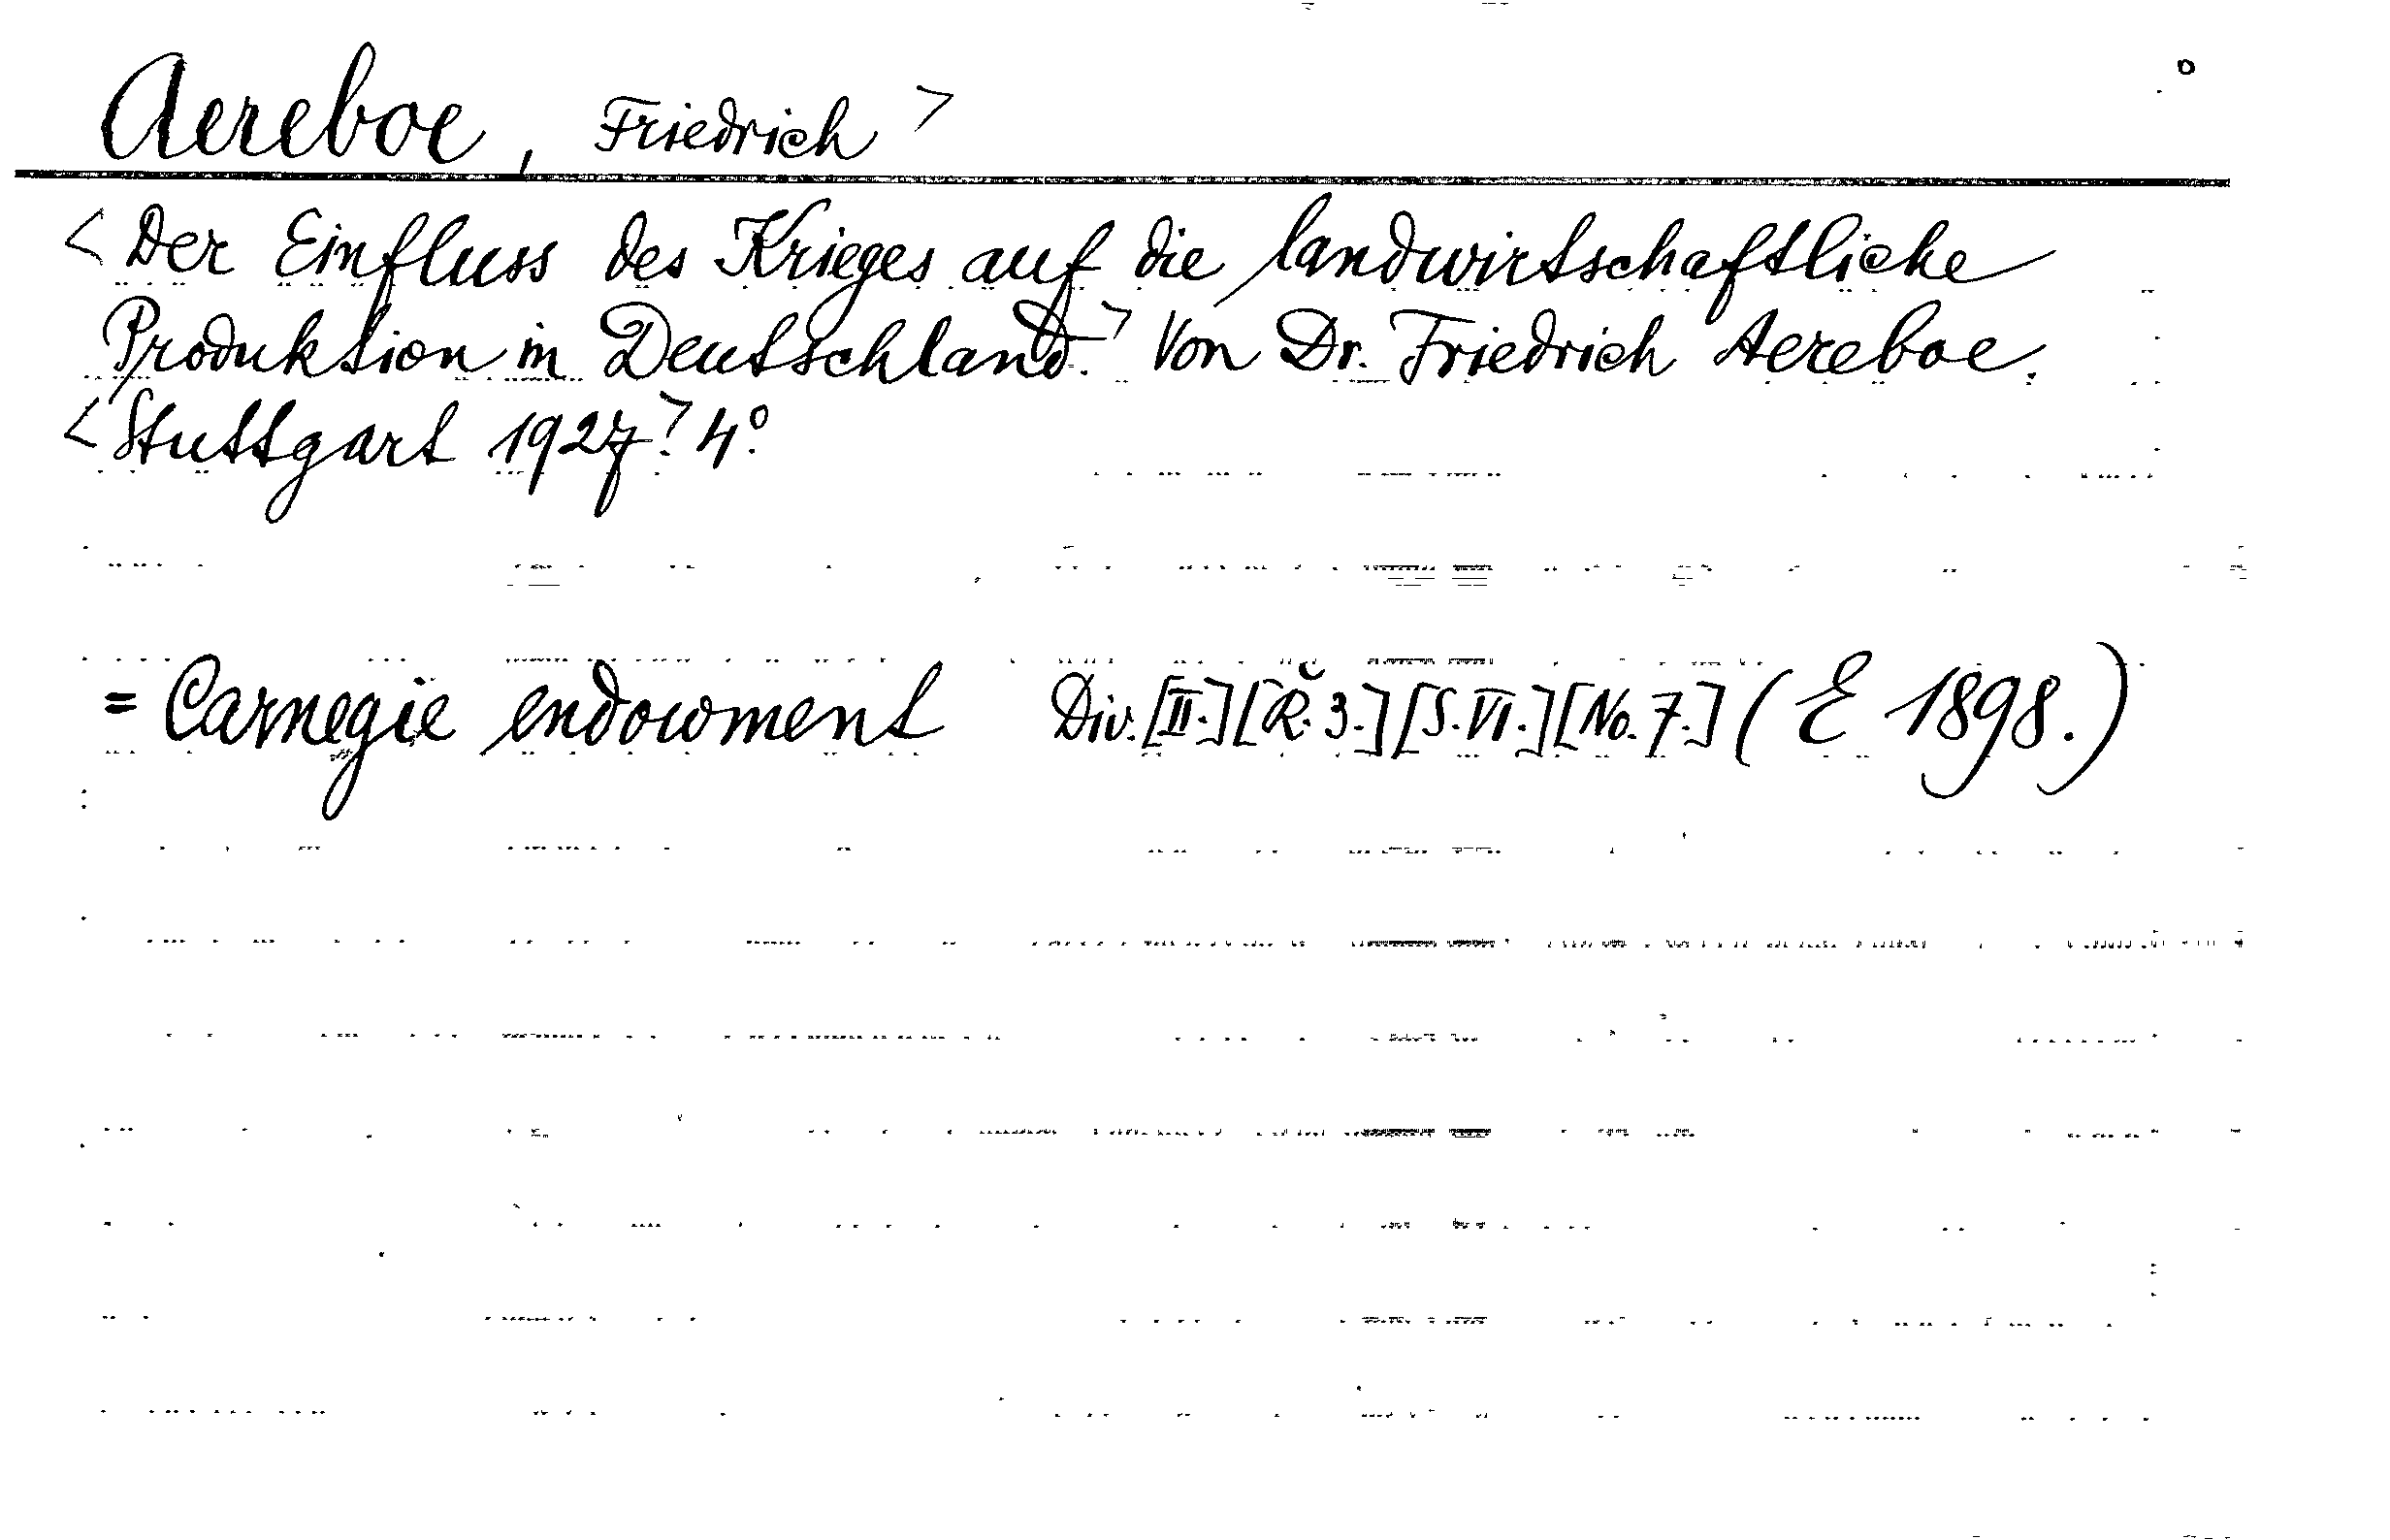 Aereboe, Friedrich >
< Der Einfluss des Krieges auf die landwirtschaftliche
Produktion in Deutschland.> Von Dr. Friedrich Aereboe.
< Stuttgart 1927.> 4°
= Carnegie endowment Div. [II.] [Ř. 3.] [S. VI.] [No. 7.] (E 1898.)